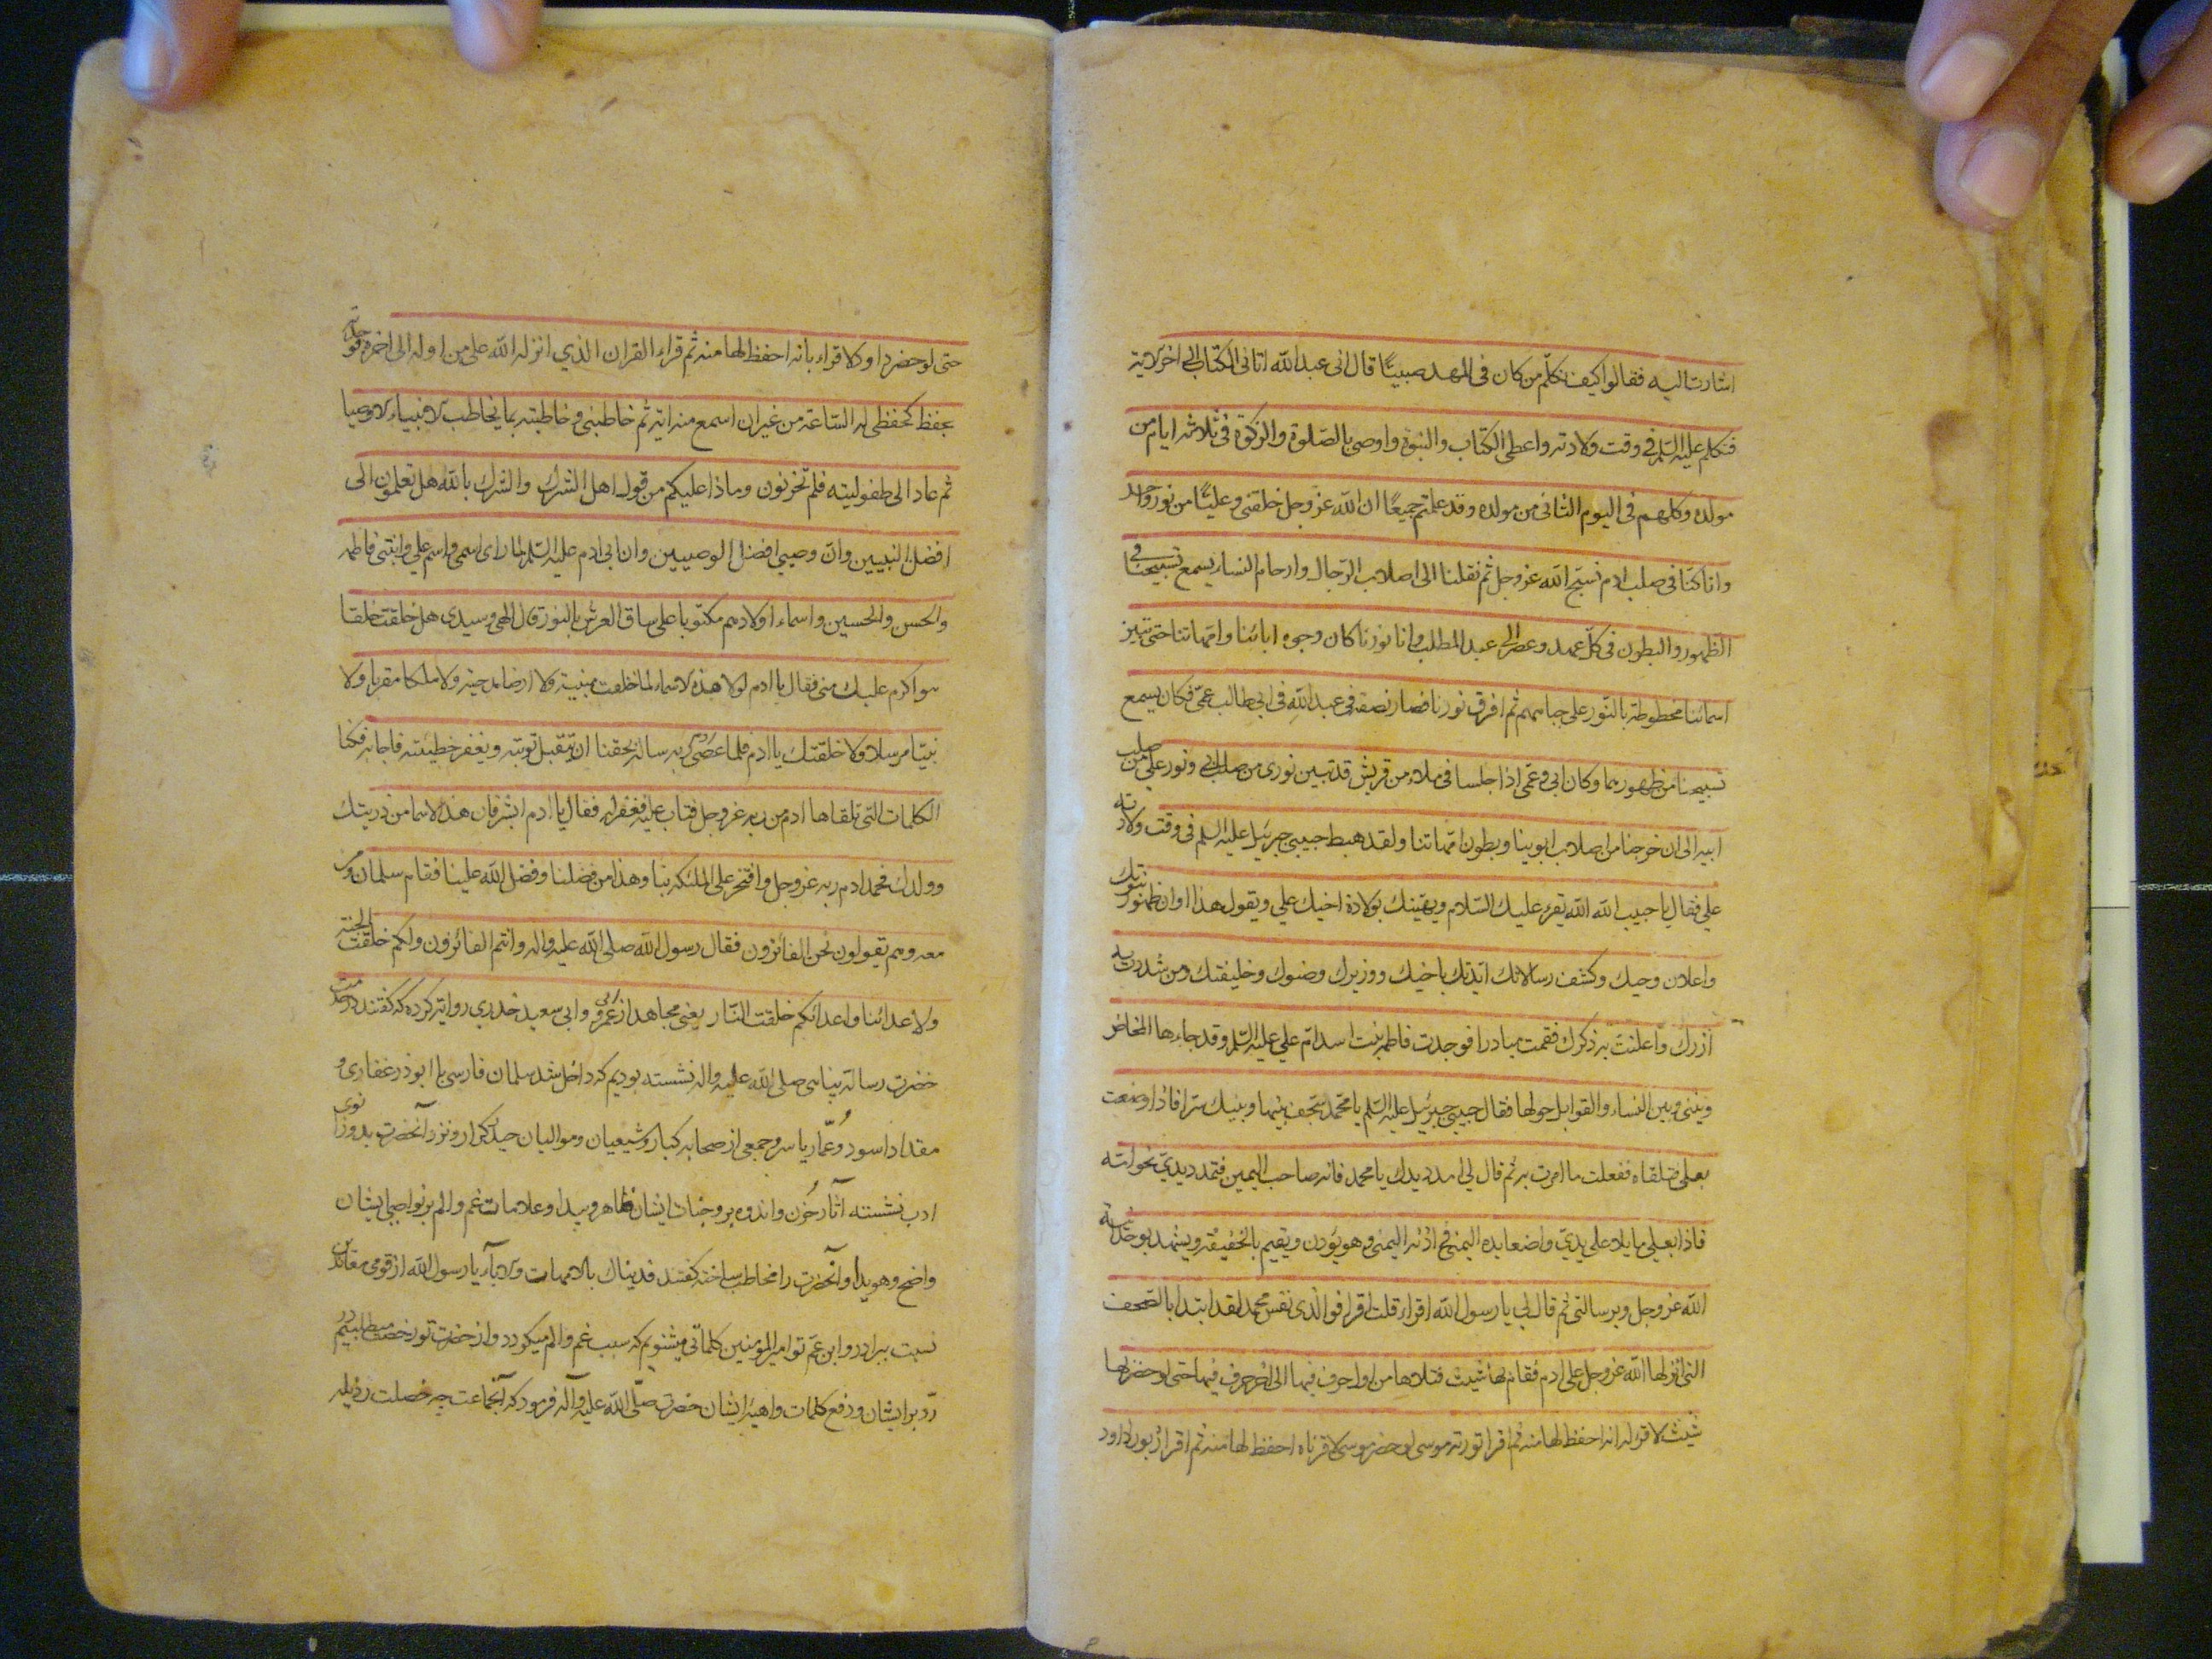 اشارت اليه فقالوا كيف نكلّم من كان فى المهد صبيًّا قال انى عبد الله اتانى الكتاب الى اخر الاية
فتكلم عليه السّلم فى وقت ولادته واعطى الكتاب والنبوة واوصى بالصّلوة والزكوة فى ثلاثه ايام من
مولده وكلهم فى اليوم الثانى من مولده وقد علمتم جميعًا ان الله عزّ وجل خلقنى وعليًّا من نور واحد
وانا كنا فى صلب ادم نسبّح الله عز وجل ثم نقلنا الى اصلاب الرّجال وارحام النساء يسمع تسبيحنا فى
الظهور والبطون فى كلّ عهد وعصر الى عبد المطلب وانا نورنا كان وجوه ابائنا وامّهاتنا حتى تبيّن
اسمائنا مخطوطة بالنّور على جباههم ثم افرق نورنا فصار نصفه فى عبد الله فى ابى طالب عمّى فكان يسمع
تسبيحنا من ظهورهما وكان ابى وعمّى اذا جلسا فى ملاء من قريش قد تبين نورى من صلب ابى ونور على من صلب
ابيه الى ان خرجنا من اصلاب ابوينا وبطون امّهاتنا ولقد هبط حبيبى جبرئيل عليه السلم فى وقت ولادته
على فقال يا حبيب الله الله يقرء عليك السّلام ويهنّيك بولادة اخيك على ويقول هذا اوان ظهور نبوتك
واعلان وحيك وكشف رسالاتك ايّدتك باخيك ووزيرك وصنوك وخليفتك ومن شددت به
ازرك واعلنت به ذكرك فقمت مبادرا فوجدت فاطمه بنت اسد امّ علي عليه السّلم وقد جاءها المخاض
وبينى وبين النساء والقوابل حولها فقال حبيبى جبرئيل عليه السّلم يا محمّد سجف بينها وبينك سترا فاذا وضعت
بعلى فتلقاه ففعلت ما امرت به ثم قال لى امدد يدك يا محمد فانه صاحب اليمين فمدد يدىّ نحو امّه
فاذا بعلي مايلا على يدىّ واضعا يده اليمنى فى اذنه اليمنى وهو يؤذن ويقيم بالحنيفية ويشهد بوحدانية
الله عز وجل وبرسالتى ثم قال لى يا رسول الله اقراء قلت اقرء فوالذى نفس محمد لقد ابتدا بالصّحف
التى انزلها الله عز وجل على ادم فقام بها شيث فتلاها من اول حرف فيها الى اخر حرف فيها حتى لو حضر بها
شيث لاقرّ له انه احفظ لها منه ثم قرا تورية موسى لو حضر موسى لاقر باه احفظ لها منه ثم اقرا زبور داود
حتى لو حضر داود لاقراء بانه احفظ لها منه ثم قراء القران الذي انزله الله علي من اوله الى اخره فوجدته
يحفظ كحفظى له السّاعة من غير ان اسمع منه اية ثم خاطبنى وخاطبته بما يخاطب الانبياء الاوصيا
ثم عاد الى طفوليته فلم تحزنون وماذا عليكم من قول اهل الشرك والشرك بالله هل تعلمون انى
افضل النبيين وانّ وصيي افضل الوصيين وان ابى ادم عليه السّلم لما راى اسمى واسم علي وابنتى فاطمه
والحسن والحسين واسماء اولادهم مكتوبا على ساق العرش بالنور قال الهى وسيدى هل خلقت خلقا
هو اكرم عليك منى فقال يا ادم لولا هذه الاسماء لما خلقت سماء مبنية ولا ارضا مدحية ولا ملكا مقربا ولا
نبيّا مرسلا ولا خلقتك يا ادم فلما عصى ادم ربه ساله بحقنا ان يتقبل توبته ويغفر خطيئته فاجابه فكنا
الكلمات التى تلقاها ادم من ربه عز وجل فتاب عليه فغفر له فقال يا ادم ابشر فان هذه الاسما من ذريتك
وولدك فحمد ادم ربه عز وجل وافتخر على الملئكة بنا وهذا من فضلنا وفضل الله علينا فقام سلمان ومن
معه وهم يقولون نحن الفائزون فقال رسول الله صلى الله عليه واله وانتم الفائزون ولكم خلقت الجنة
ولاعدائنا واعدائكم خلقت النّار يعنى مجاهد از ابى عمرو وابى سعيد خدرى روايت كرده كه گفتند در خدمت
حضرت رسالة پناهى صلى الله عليه واله نشسته بوديم كه داخل شد سلمان فارسى با ابوذر غفارى و
مقداد اسود وعمّار ياسر وجمعى از صحابه كبار وشيعيان ومواليان حيدر كرار ونزد آنحضرت بدو زانوى
ادب نشسته آثار حُزن واندوه بر وجنات ايشان ظاهر وپيدا وعلامات غم والم بر نواصى ايشان
واضح وهويدا وآنحضرت را مخاطب ساخته گفتند فديناك بالامهات والاباء يا رسول الله از قومى معاندين
نسبت ببرادر وابن عم تو امير المؤمنين كلماتى ميشنويم كه سبب غم والم ميگردد واز حضرت تو رخصت ميطلبيم در
ردّ بر ايشان ودفع كلمات واهيه ايشان حضرت صلّى الله عليه وآله فرمود كه آنجماعت چه خصلت رذيله